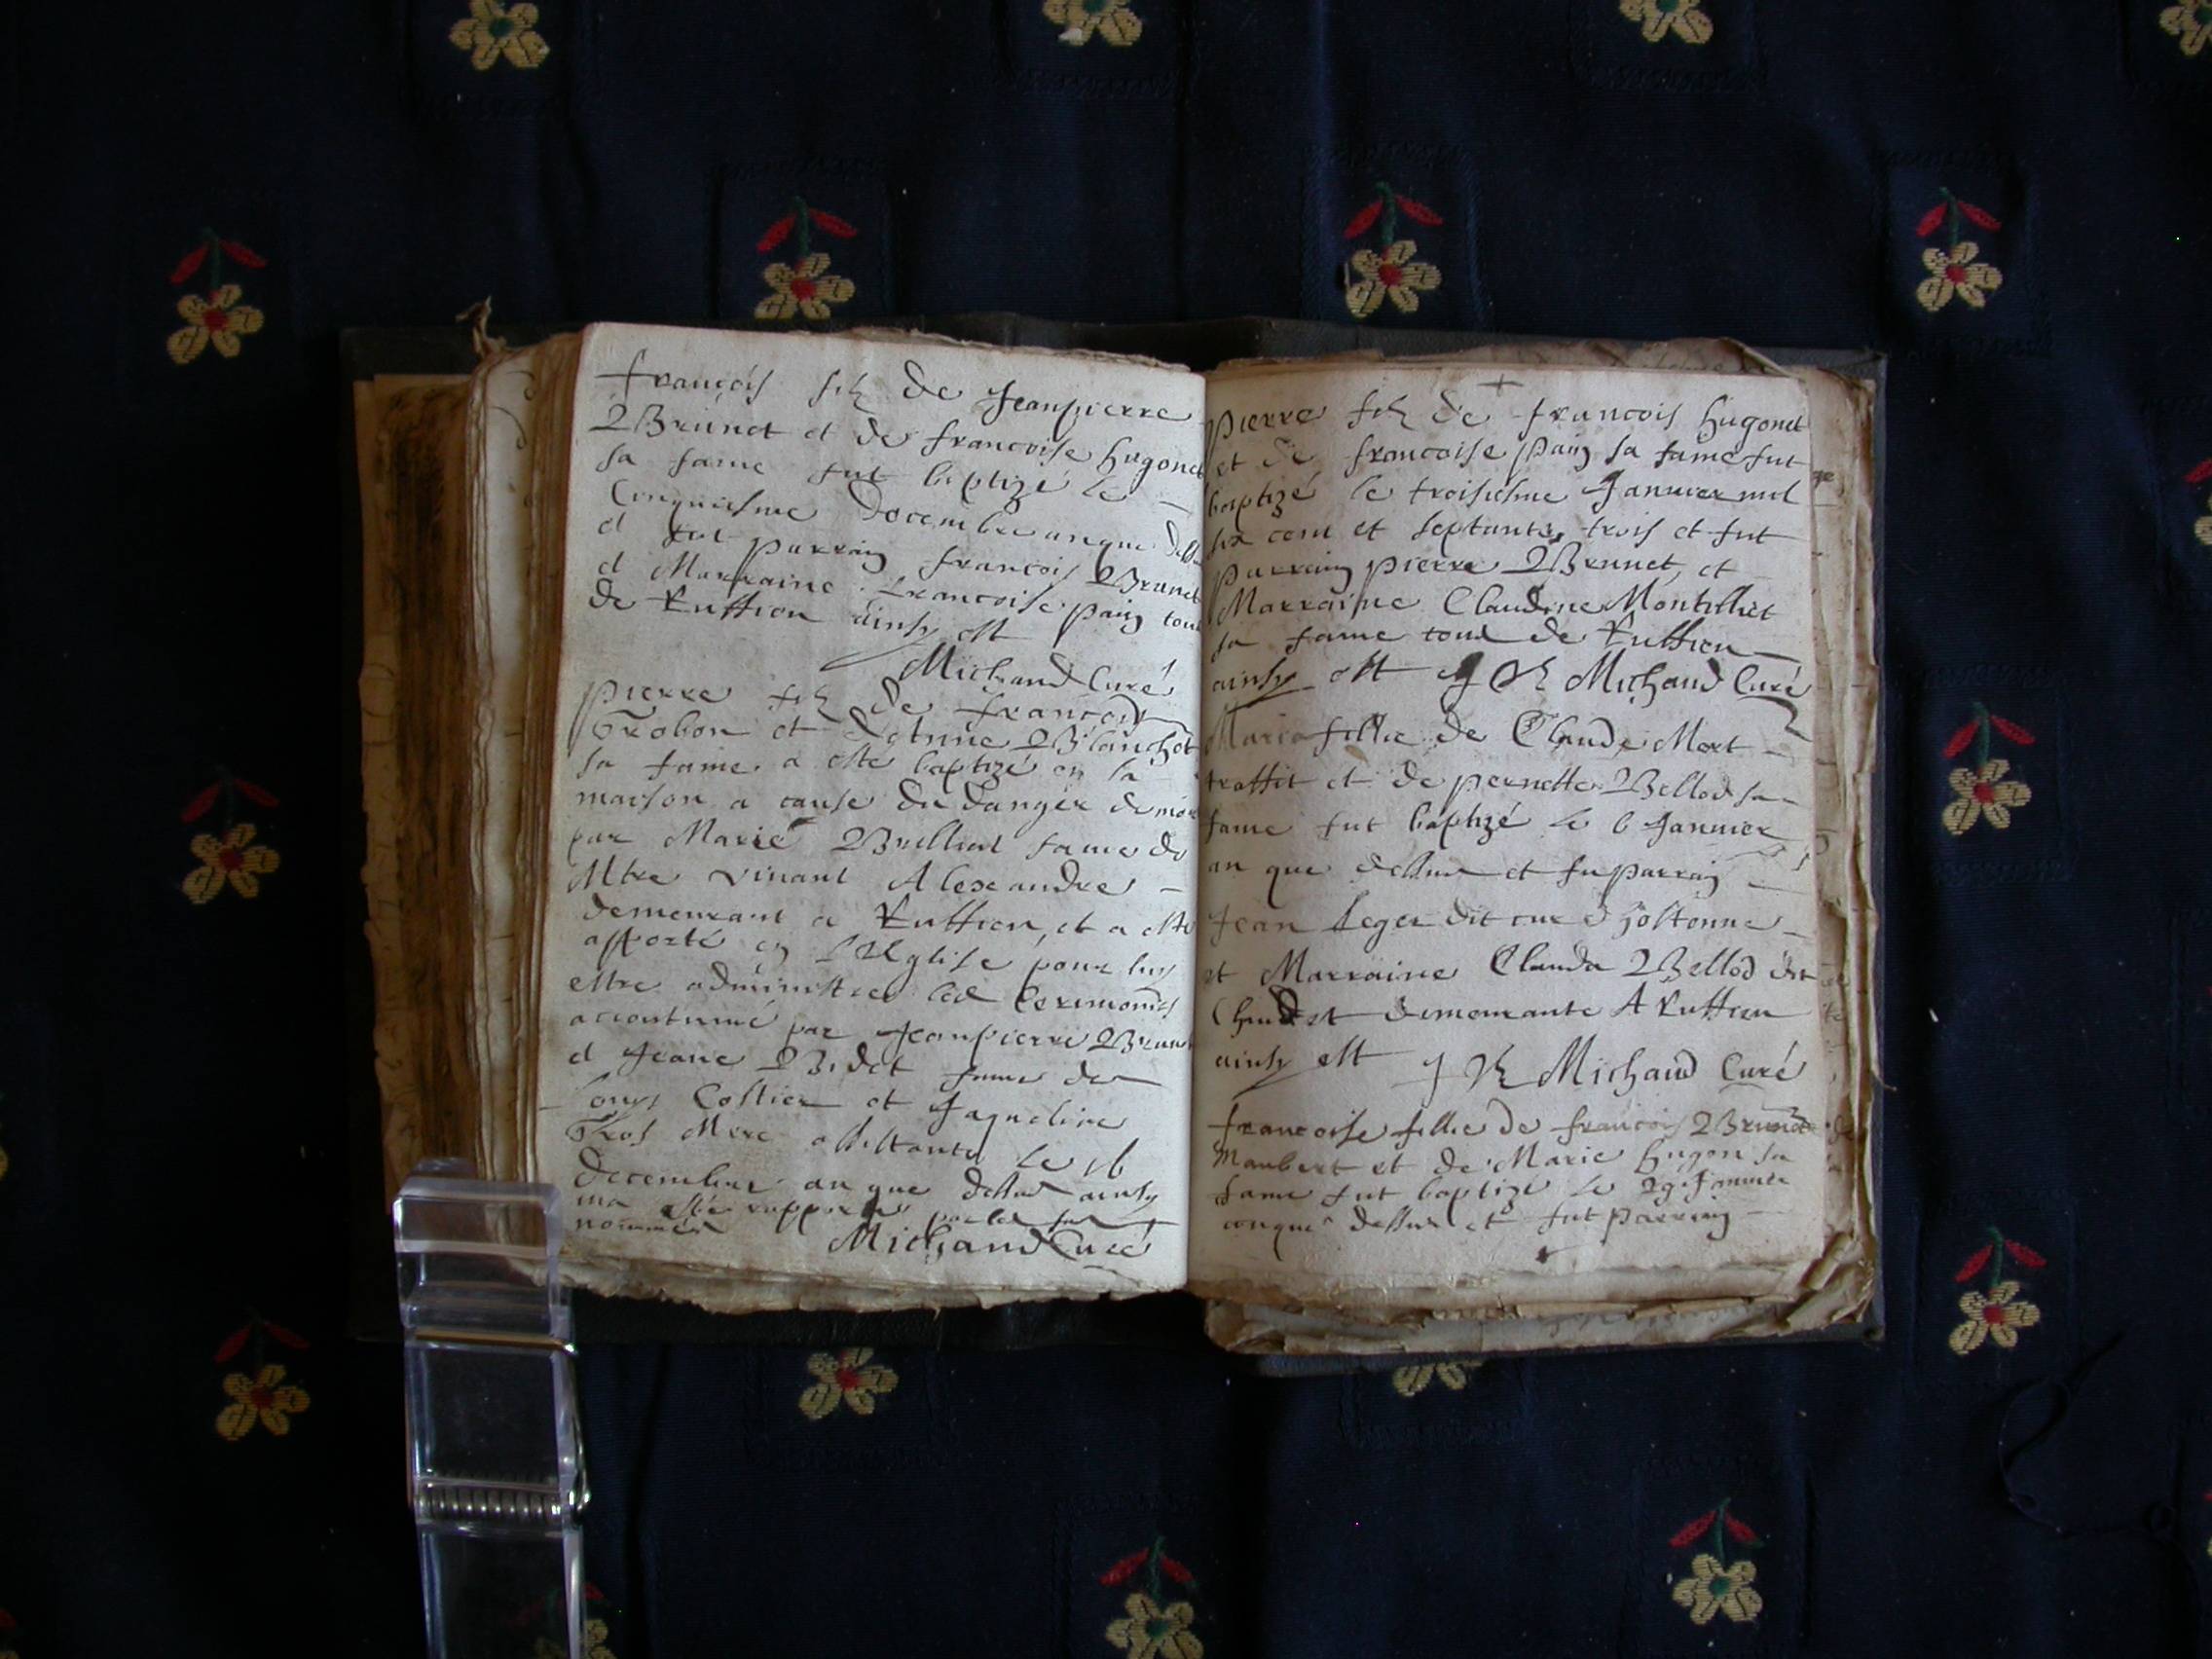 françois filz de Jeanpierre
Brunet et de francoise hugonet
sa fame fut baptizé le
Cinquiesme decembre anque dessus
et fut parrain francois Brunet
et Marraine francoise pain tous
de Ruffieu ainsy est
Michaud Curé
pierre filz de francois
et Blanchet
sa fame a este baptizé en sa
maison a cause du danger de mort
par Marie Brillied fame de
Mtre vinant Alexandre
demeurant a Ruffieu, et a esté
apporté en l'Eglise pour luy
estre administrer les Ceremonies
accoutumé par Jeanpierre Brunet
et Jeane Bidet fame de
Costier et Jaqueline
Gros Mere assistante le 16
decembre an que dessus ainsy
ma esté rapporté par les sus
nommés Michaud Curé
pierre filz de francois hugonet
et de francoise pain sa fame fut
baptizé le troisiesme Janvier mil
six cent et septante trois et fut
parrain pierre Brunet et
Marraine Claudine Montilliet
sa fame tous de Ruffieu
ainsy est Michaud Curé
Maria fillie de Claude Mert
traffit et de pernette Bellod sa
fame fut baptizé le 6 Janvier
an que dessus et fu parrain
Jean Leger dit
et Marraine Clauda Bellod dit
demeurante A Ruffieu
ainsy est Michaud Curé
francoise fillie de francois Brunet
Maubert et de Marie hugon sa
fame fut baptizé le 29 Janvier
anque dessus et fut parrain